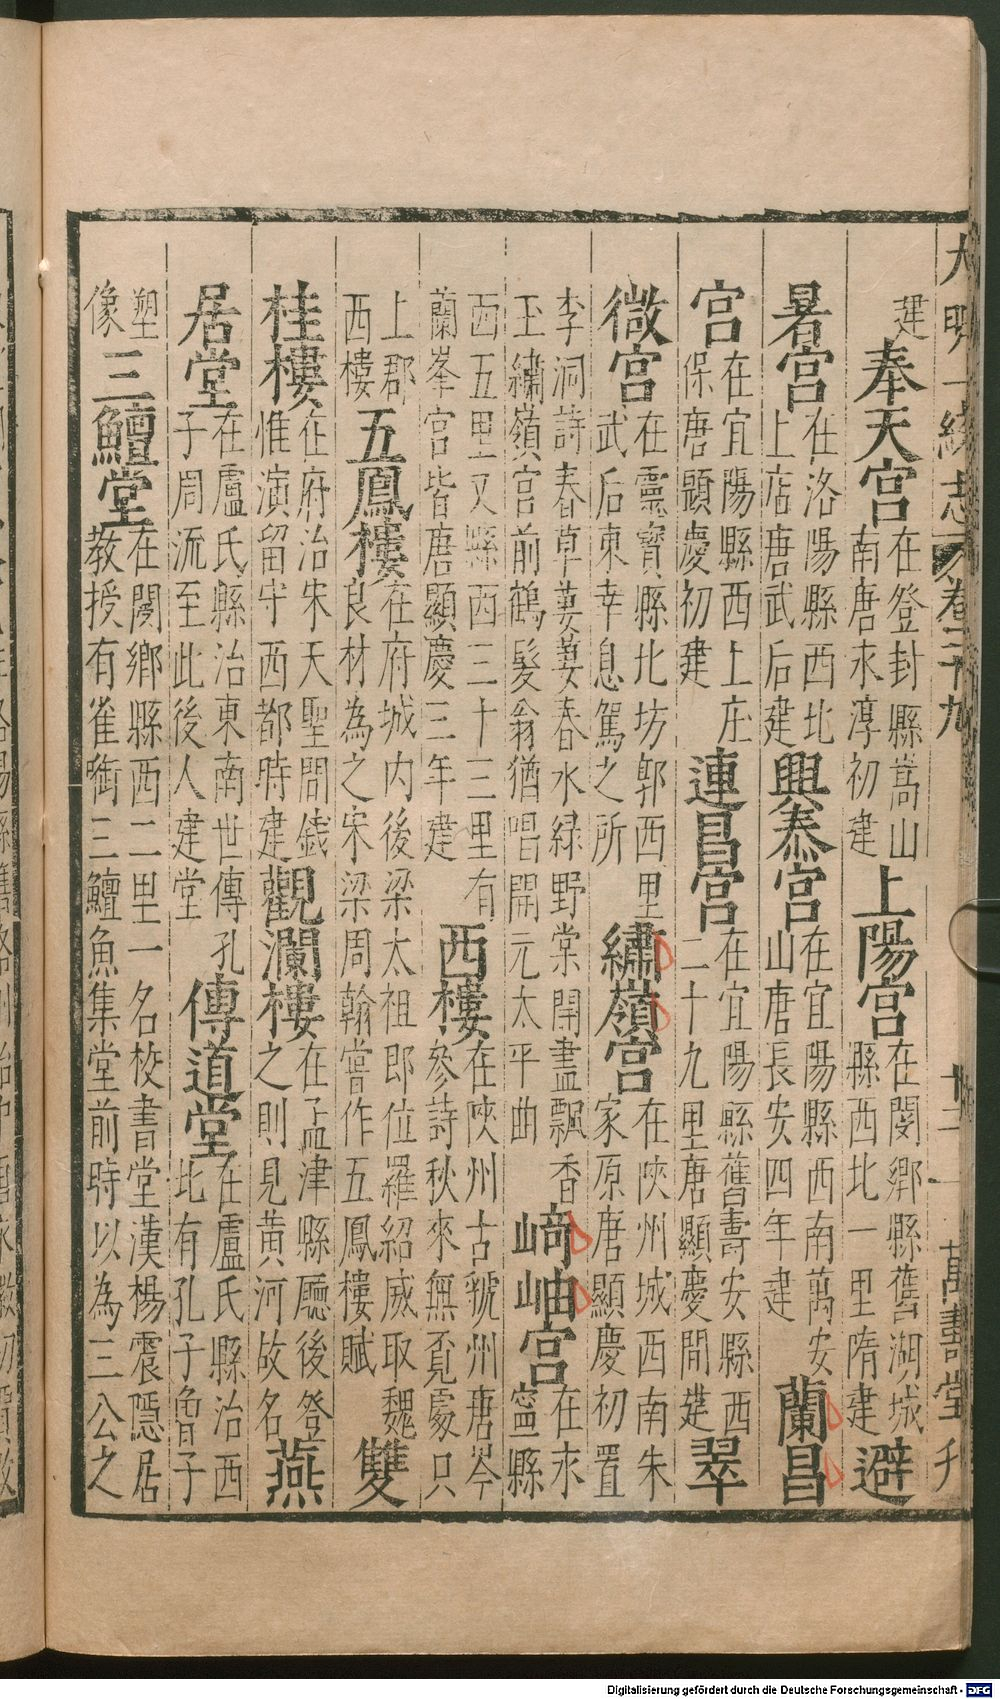 大明一統志 卷二十九 廿二 萬壽堂刊
建奉天宮在登封縣嵩山南唐永淳初建上陽宮在閿鄉縣舊湖城縣西北一里隋建避
暑宮在洛陽縣西北上店唐武后建興泰宮在宜陽縣西南萬安山唐長安四年建蘭昌
宮在宜陽縣西上庄保唐顯慶初建連昌宮在宜陽縣舊壽安縣西二十九里唐顯慶間建翠
微宮在靈寶縣北坊郭西里武后東幸息駕之所繡嶺宮在陝州城西南朱家原唐顯慶初置
李洞詩春草萋萋春水綠野棠開盡飄香玉繡嶺宮前鶴髮翁猶唱開元太平曲崎岫宮在永寧縣
西五里又縣西三十三里有蘭峯宮皆唐顯慶三年建西樓在陝州古虢州唐岑參詩秋來無覔處只
上郡西樓五鳳樓在府城內後梁太祖郎位羅紹威取魏良材為之宋梁周翰嘗作五鳳樓賦雙
桂樓在府治宋天聖間錢惟演留守西都時建觀瀾樓在孟津縣廳後登之則見黃河故名燕
居堂在盧氏縣治東南世傳孔子周流至此後人建堂傳道堂在盧氏縣治西北有孔子曾子
塑像三鱣堂在閿鄉縣西二里一名校書堂漢楊震隱居教授有雀啣三鱣魚集堂前時以為三公之
Digitalisierung gefördert durch die Deutsche Forschungsgemeinschaft - DFG